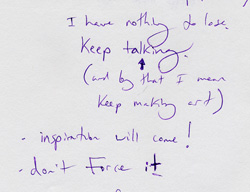 I have nothing to lose.
Keep talking.
(and by that I mean
Keep making art)
- inspiration will come!
- don't Force it